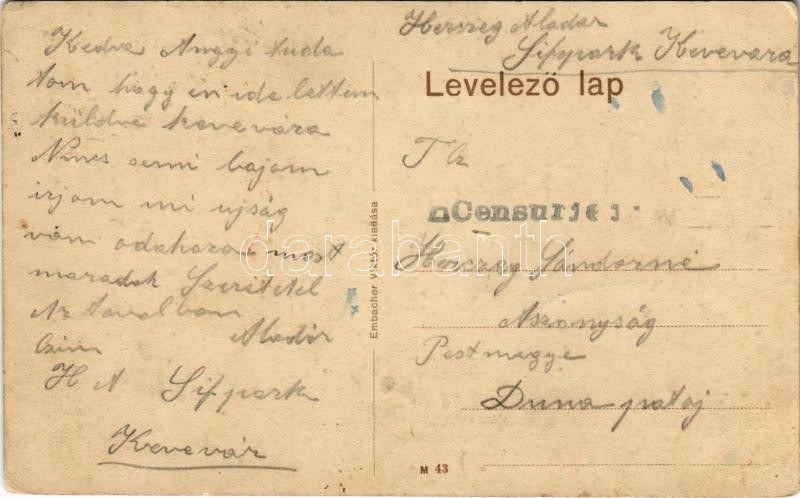 Kedva Angyi tuda
tom hogy én ide lettem
küldve kevevára
Nincs semi bajom
irjom mi ujság
vám odahaza most
maradok Szeretetel
Az tavolban
Aladár
Czim
H A Sifpark
Kevevár
Embacher Viktor kiadása
Herczeg Aladar
Sifpark Kevevara
Levelező lap
T Cz
Censur
Herczeg Sándorné
Aszonyság
Pestmegye
Duna pataj
M 43
darabanth